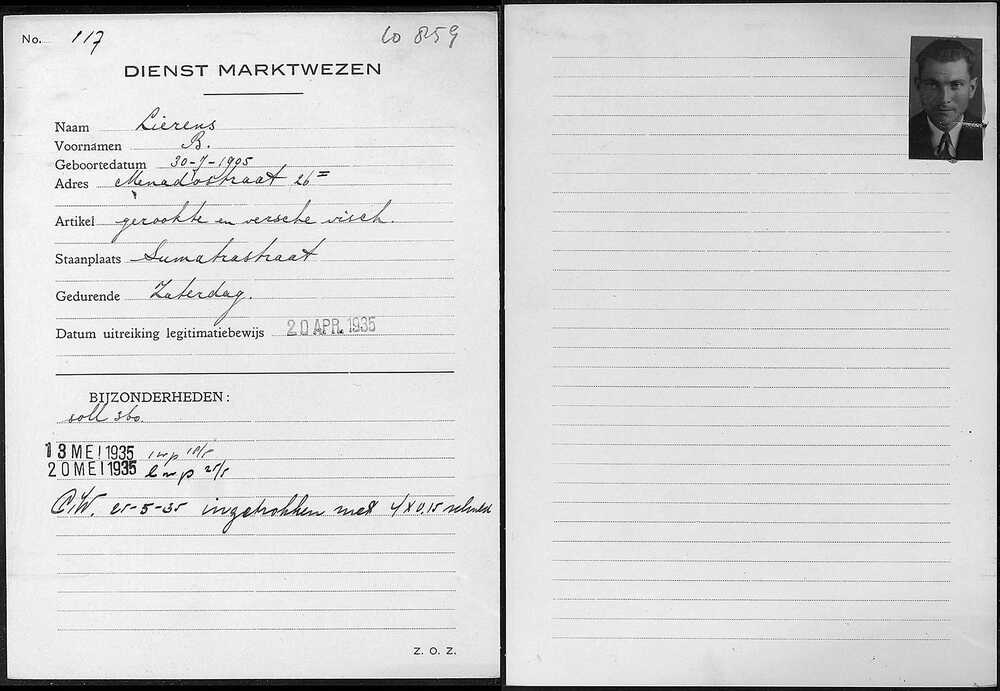 No. 117
60 859
DIENST MARKTWEZEN
Naam Lierens
Voornamen B.
Geboortedatum 30-7-1905
Adres Menadostraat 26 II
Artikel gerookte en versche visch.
Staanplaats Sumatrastraat
Gedurende Zaterdag.
Datum uitreiking legitimatiebewijs 20 APR. 1935
BIJZONDERHEDEN:
soll 360.
13 MEI 1935 imp 18/5
20 MEI 1935 imp 25/5
C.W. 25-5-35 ingetrokken met 4 x 0,15 schuld
Z. O. Z.